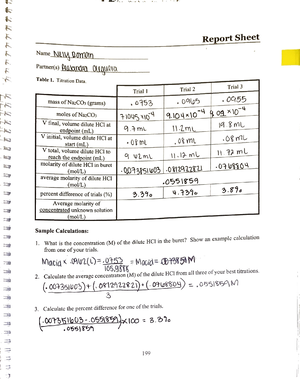 Report Sheet
Name
Partner(s)
Table 1. Titration Data.
Trial 1 Trial 2 Trial 3
mass of Na2CO3 (grams) .0753 .0965 .0955
moles of Na2CO3 7.1045×10⁻⁴ 9.104×10⁻⁴
V final, volume dilute HCl at endpoint (mL) 9.7mL 11.2mL 19.8mL
V initial, volume dilute HCl at start (mL) .08mL .08mL .08mL
V total, volume dilute HCl to reach the endpoint (mL) 11.12mL
molarity of dilute HCl in buret (mol/L) .007351603 .0812922821 .0768804
average molarity of dilute HCl (mol/L) .0551859
percent difference of trials (%) 3.3% 4.73% 3.8%
Average molarity of concentrated unknown solution (mol/L)
Sample Calculations:
1. What is the concentration (M) of the dilute HCl in the buret? Show an example calculation
from one of your trials.
Macid × (L) = .0753 = Macid =
105.9888
2. Calculate the average concentration (M) of the dilute HCl from all three of your best titrations.
(.007351603) + (.0812922821) + (.0768804) = .0551859M
3
3. Calculate the percent difference for one of the trials.
(.007351603 - .0551859) ×100 = 3.3%
.0551859
199